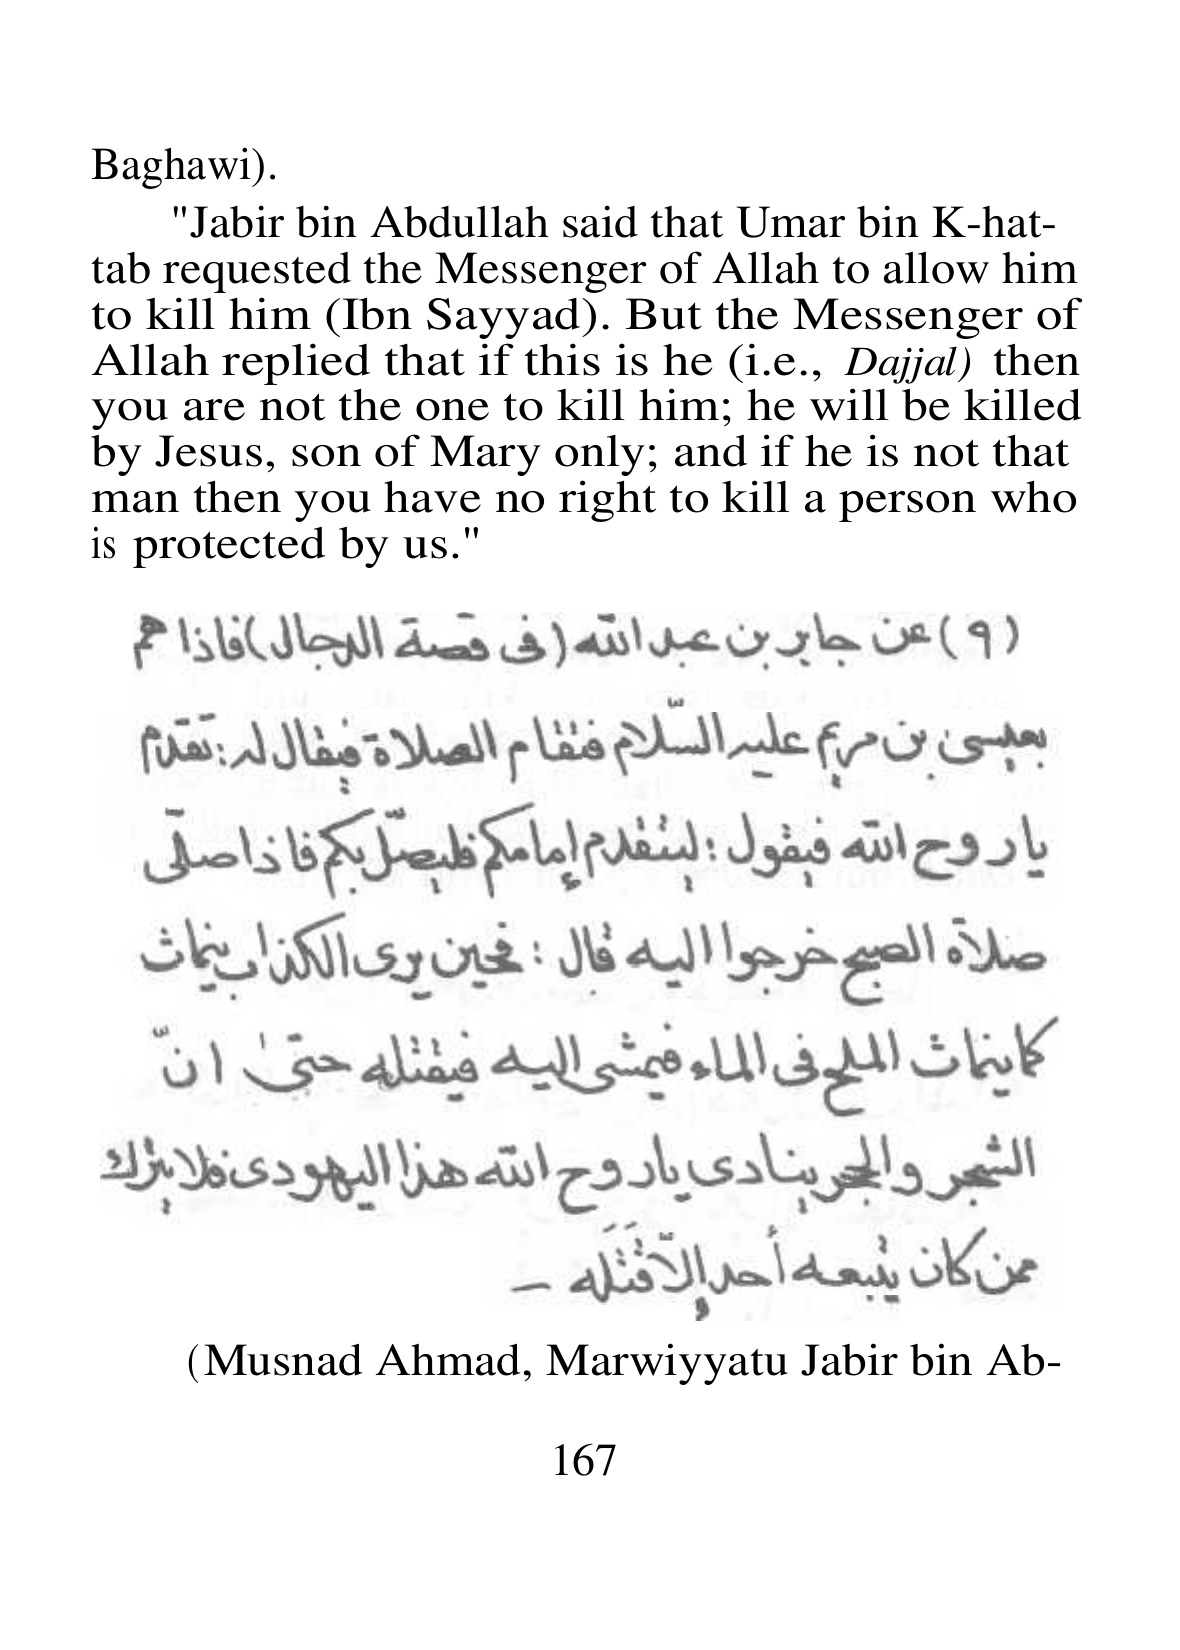 Baghawi).
"Jabir bin Abdullah said that Umar bin K-hat-
tab requested the Messenger of Allah to allow him
to kill him (Ibn Sayyad). But the Messenger of
Allah replied that if this is he (i.e., Dajjal) then
you are not the one to kill him; he will be killed
by Jesus, son of Mary only; and if he is not that
man then you have no right to kill a person who
is protected by us."
(٩) عن جابر بن عبد الله (فى قصة الدجال) فاذا هم
بعيسى بن مريم عليه السّلام فتقام الصلاة فيقال له: تقدم
يا روح الله فيقول: ليتقدم إمامكم فليصلّ بكم فاذا صلّى
صلاة الصبح خرجوا اليه قال: فحين يرى الكذاب ينماث
كما ينماث الملح فى الماء فيمشى اليه فيقتله حتىٰ انّ
الشجر والحجر ينادى يا روح الله هذا اليهودى فلا يترك
ممن كان يتبعه أحد إلاّ قَتَله –
(Musnad Ahmad, Marwiyyatu Jabir bin Ab-
167